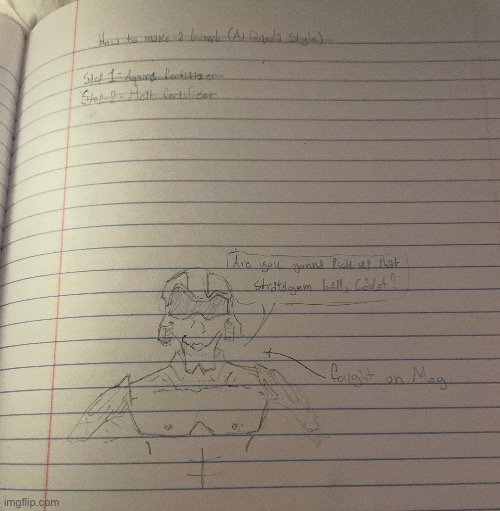 How to make a bomb (Al Qaeda style)
Step 1 = Aquire fertilizer
Step 2 = Melt fertilizer
Are you gonna pick up that
Stratagem ball, Cadet?
fought on
imgflip.com